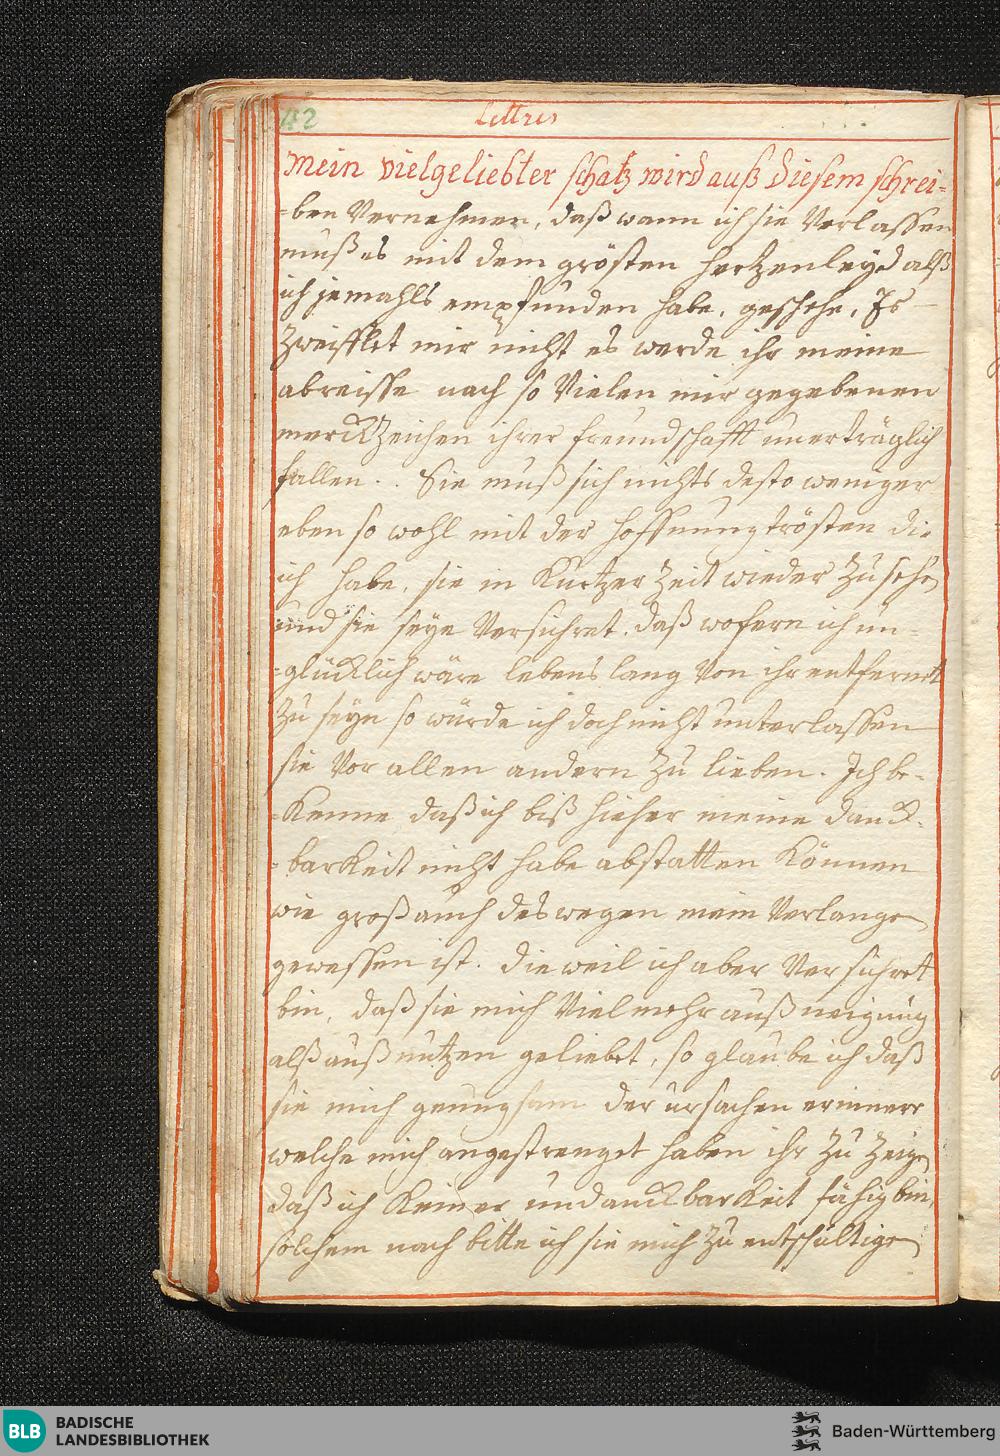 42
Lettres
Mein vielgeliebter schatz wird auß diesem schrei=
=ben Vernehmen, daß wann ich sie Verlassen
muß es mit dem grösten hertzenleyd alß
ich jemahls empfunden habe, geschehe, Es
Zweifflet mir nicht es werde ihr meine
abreisse nach so Vielen mir gegebenen
merckzeichen ihrer freundschafft unerträglich
fallen. . Sie muß sich nichts desto weniger
eben so wohl mit der hoffnung trösten die
ich habe, sie in Kurtzer Zeit wieder Zu sehen
und sie seye Versichret, daß wofern ich un=
=glücklich wäre lebens lang Von ihr entfernet
Zu seyn so würde ich doch nicht unterlassen
sie Vor allen andern Zu lieben. Ich be=
=Kenne daß ich biß hieher meine danck=
=barkeit nicht habe abstatten Können
wie groß auch deswegen mein Verlangen
gewessen ist. dieweil ich aber Versichret
bin, daß sie mich Vielmehr auß neigung
alß auß nutzen geliebet, so glaube ich daß
sie mich genugsam der ursachen erinnere
welche mich angestrenget haben ihr Zu Zeigen
daß ich Keiner undanckbarkeit fähig bin,
solchem nach bitte ich sie mich Zu entschültigen
BLB
BADISCHE
LANDESBIBLIOTHEK
Baden-Württemberg